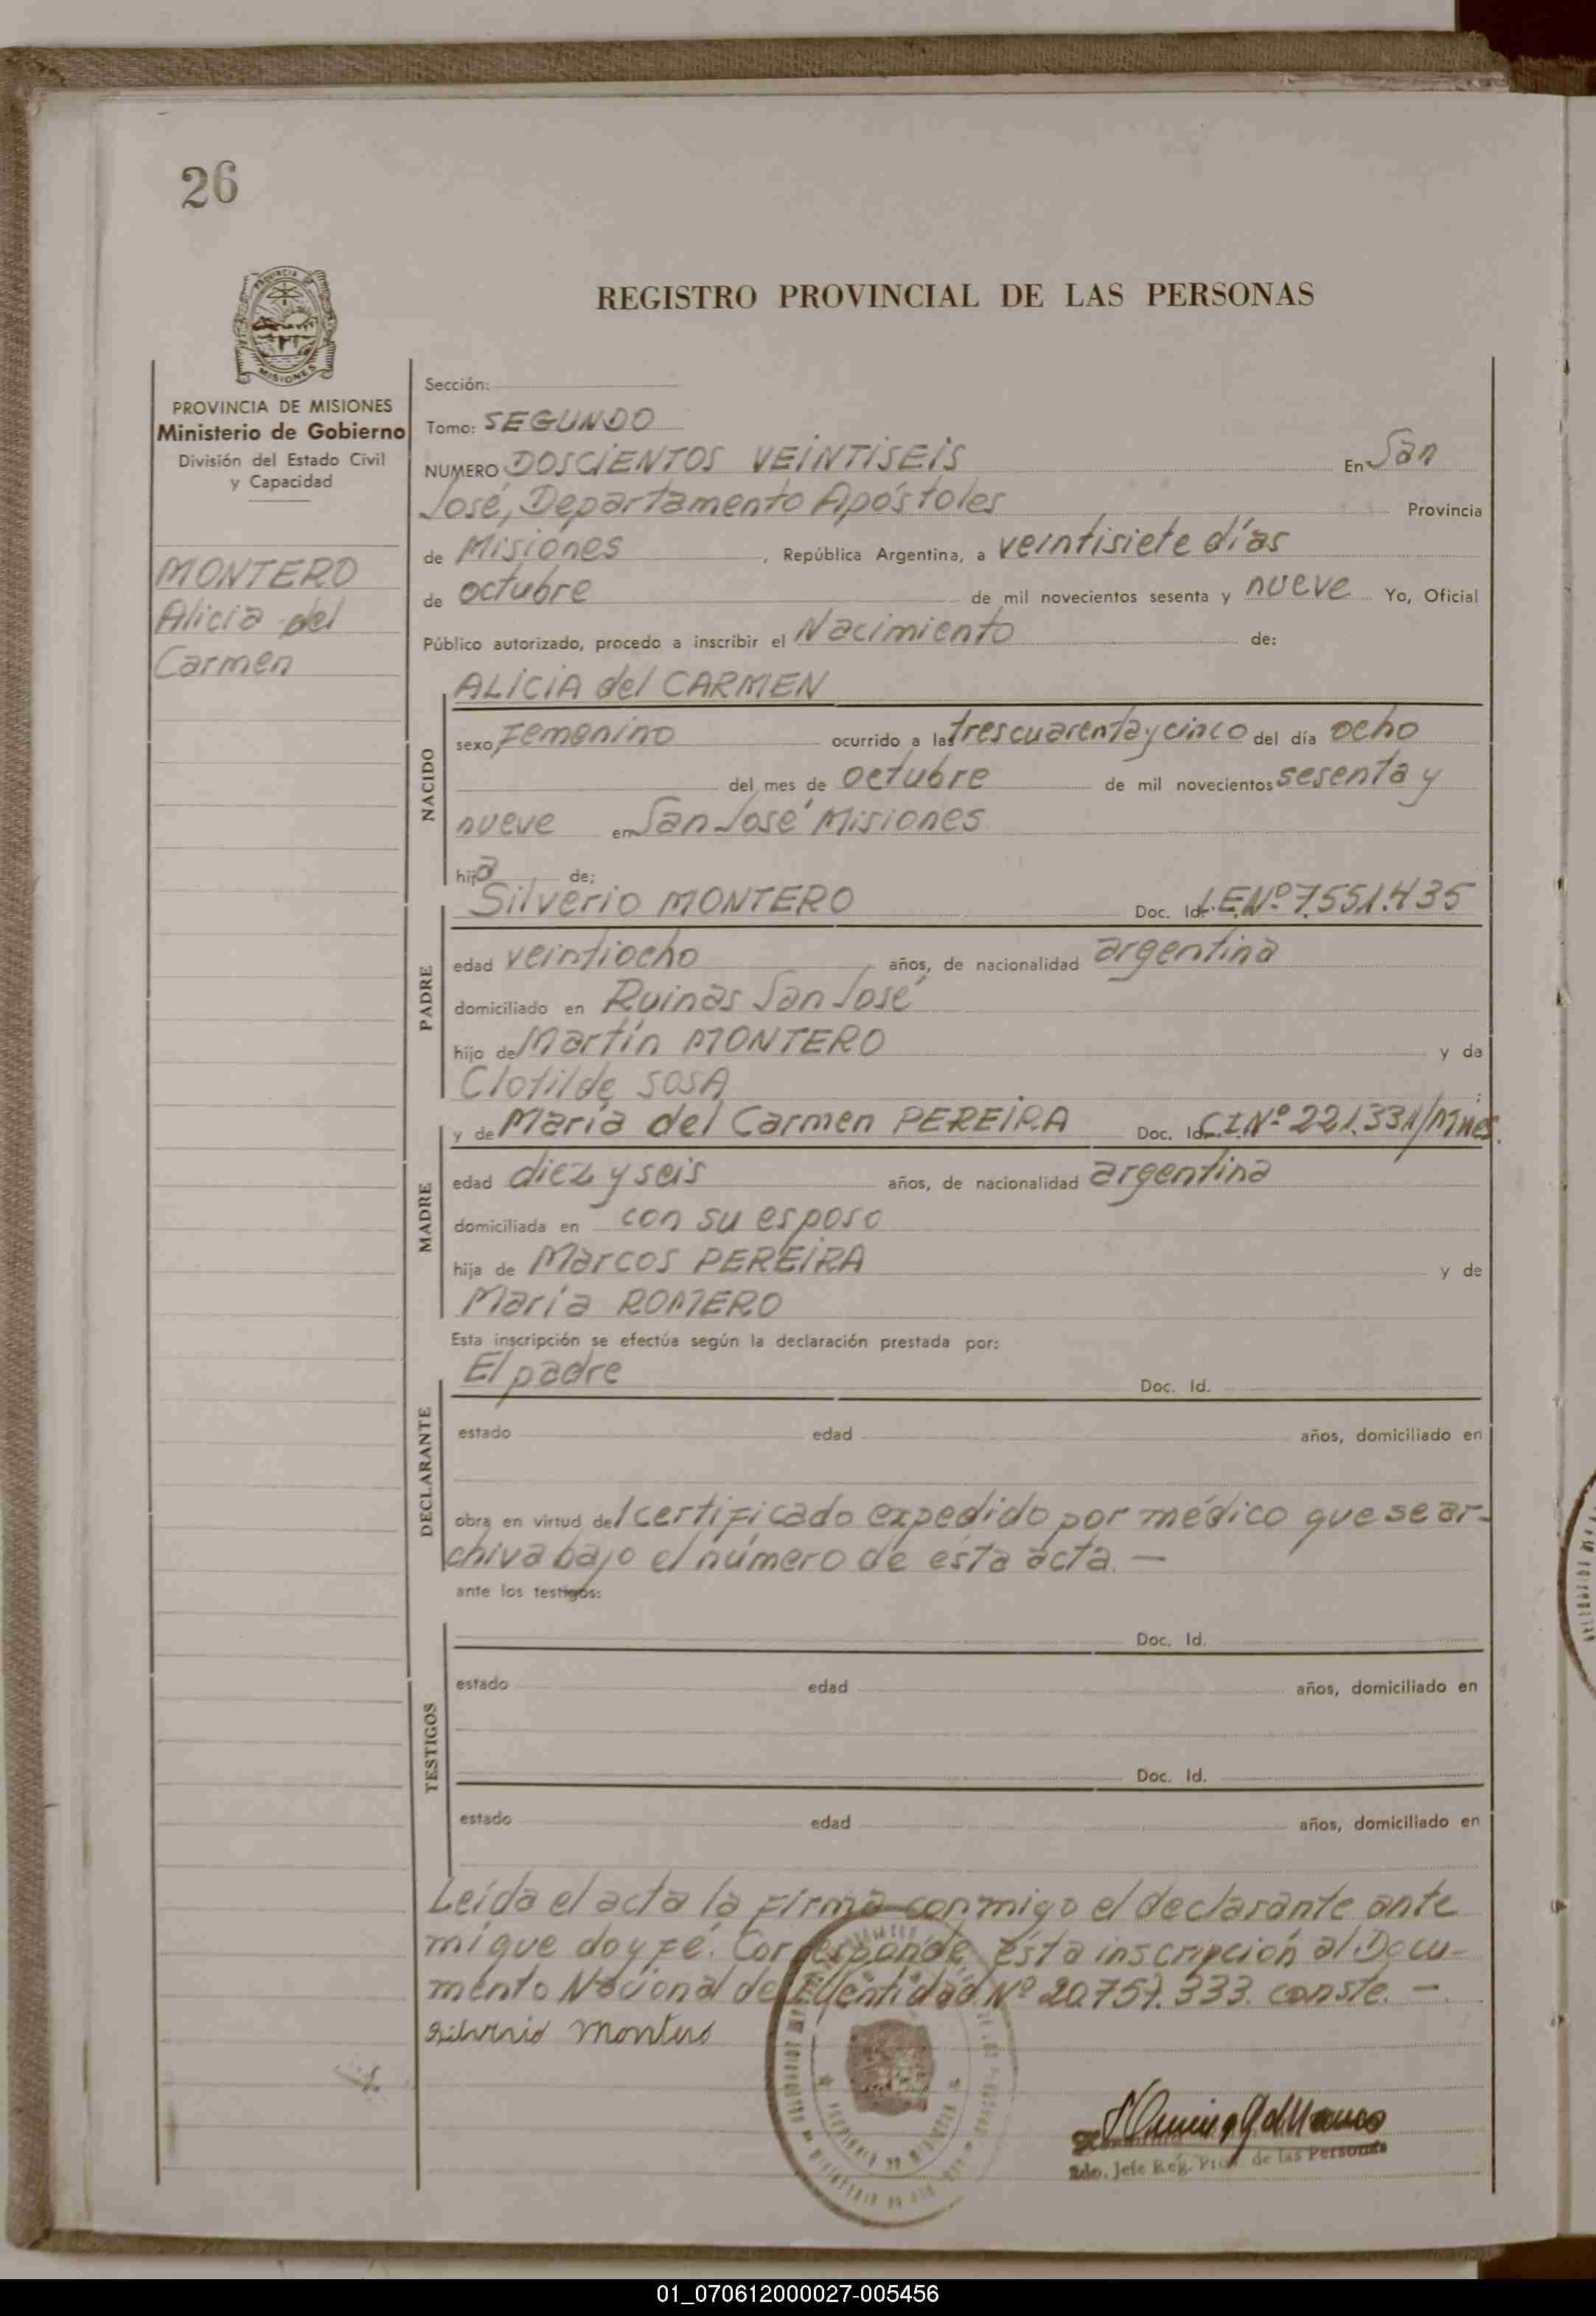 26
REGISTRO PROVINCIAL DE LAS PERSONAS
PROVINCIA DE MISIONES
Ministerio de Gobierno
División del Estado Civil
y Capacidad
MONTERO
Alicia del
Carmen
Sección:
Tomo: SEGUNDO
NUMERO DOSCIENTOS VEINTISEIS En San
José, Departamento Apóstoles Provincia
de Misiones, República Argentina, a veintisiete días
de octubre de mil novecientos sesenta y nueve Yo, Oficial
Público autorizado, procedo a inscribir el Nacimiento de:
NACIDO
ALICIA del CARMEN
sexo Femenino ocurrido a las tres cuarenta y cinco del día ocho
del mes de octubre de mil novecientos sesenta y
nueve en San José Misiones
hija de;
PADRE
Silverio MONTERO Doc. Id. L.E.Nº 7.551.435
edad veintiocho años, de nacionalidad argentina
domiciliado en Ruinas San José
hijo de Martín MONTERO y da
Clotilde SOSA ;
MADRE
y de María del Carmen PEREIRA Doc. Id. C.I.Nº 221.331/Mnes.
edad diez y seis años, de nacionalidad argentina
domiciliada en con su esposo
hija de Marcos PEREIRA y de
María ROMERO
Esta inscripción se efectúa según la declaración prestada por:
DECLARANTE
El padre Doc. Id.
estado edad años, domiciliado en
obra en virtud del certificado expedido por médico que se ar-
chiva bajo el número de esta acta. —
ante los testigos:
TESTIGOS
Doc. Id.
estado edad años, domiciliado en
Doc. Id.
estado edad años, domiciliado en
Leída el acta la firma conmigo el declarante ante
mí que doy fé. Corresponde ésta inscripción al Docu-
mento Nacional de Identidad Nº 20.757.333. conste. —
Silverio Montero
2do. Jefe Reg. Prov. de las Personas
01_070612000027-005456